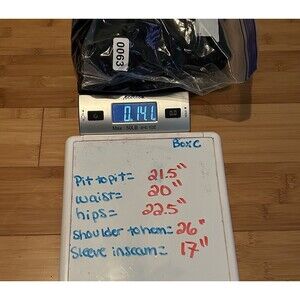 0063
0.14 L
Max: 50LB
Box C
Pit to pit = 21.5"
waist = 20"
hips = 22.5"
shoulder to hem = 26"
sleeve inseam = 17"